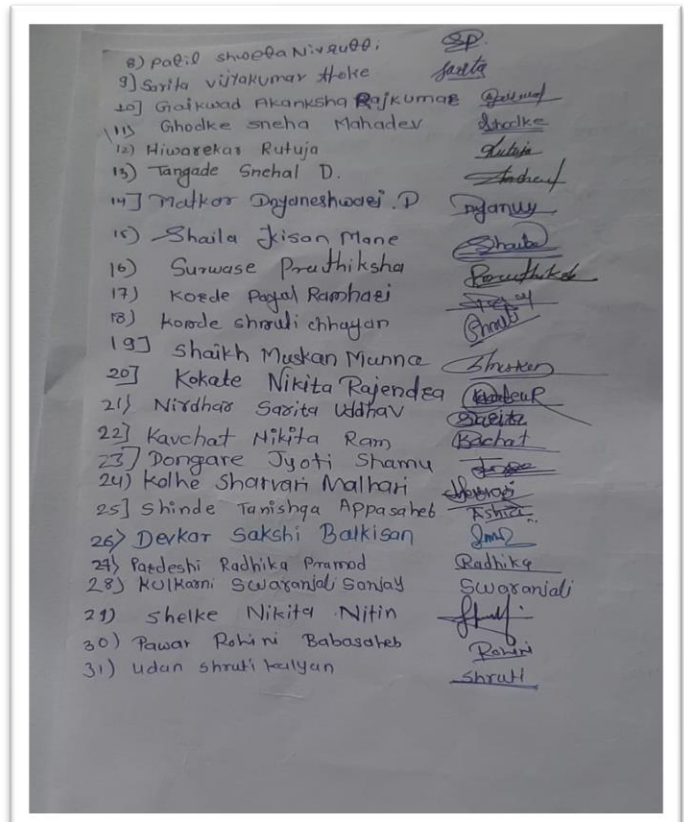 8) Patil shweta Nivrutti SP.
9] Sarita vijyakumar Hoke Sarita
10] Gaikwad Akanksha Rajkumar
11) Ghodke sneha Mahadev Ghodke
12) Hiwarekar Rutuja Rutuja
13) Tangade Snehal D.
14] Matkor Dnyaneshwari .D
15) Shaila Kisan Mane Shaila
16) Surwase Pruthiksha
17) Korde Payal Ramhari
18) korde shruti chhayan Shruti
19] Shaikh Muskan Munna
20] Kokate Nikita Rajendra
21) Nirdhar Sarita Uddhav Sarita
22] Kavchat Nikita Ram Kachat
23] Dongare Jyoti Shamu
24) Kolhe Sharvari Malhari
25] Shinde Tanishqa Appasaheb
26) Devkar Sakshi Balkisan
27) Pardeshi Radhika Pramod Radhika
28) Kulkarni Swaranjali Sanjay Swaranjali
29) Shelke Nikita Nitin
30) Pawar Rohini Babasaheb Rohini
31) Udan shruti kalyan Shruti